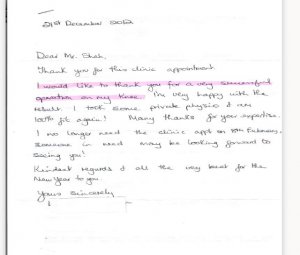 21st December 2012
Dear Mr. Shah,
Thank you for this clinic appointment.
I would like to thank you for a very successful
operation on my knee. I'm very happy with the
result. I took some private physio & am
100% fit again! Many thanks for your expertise.
I no longer need the clinic appt on 18th February,
someone in need may be looking forward to
seeing you!
Kindest regards & all the very best for the
New Year to you.
Yours sincerely